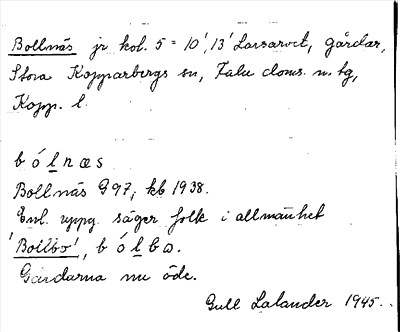 Bollnäs jr kol. 5 = 10', 13' Larsarvet, gårdar,
Stora Kopparbergs sn, Falu doms. n. tg,
Kopp. l.
bólnæs
Bollnäs G97, kb 1938.
Enl. uppg. säger folk i allmänhet
'Bollbo', bólbo.
Gårdarna nu öde.
Gull Lalander 1945.